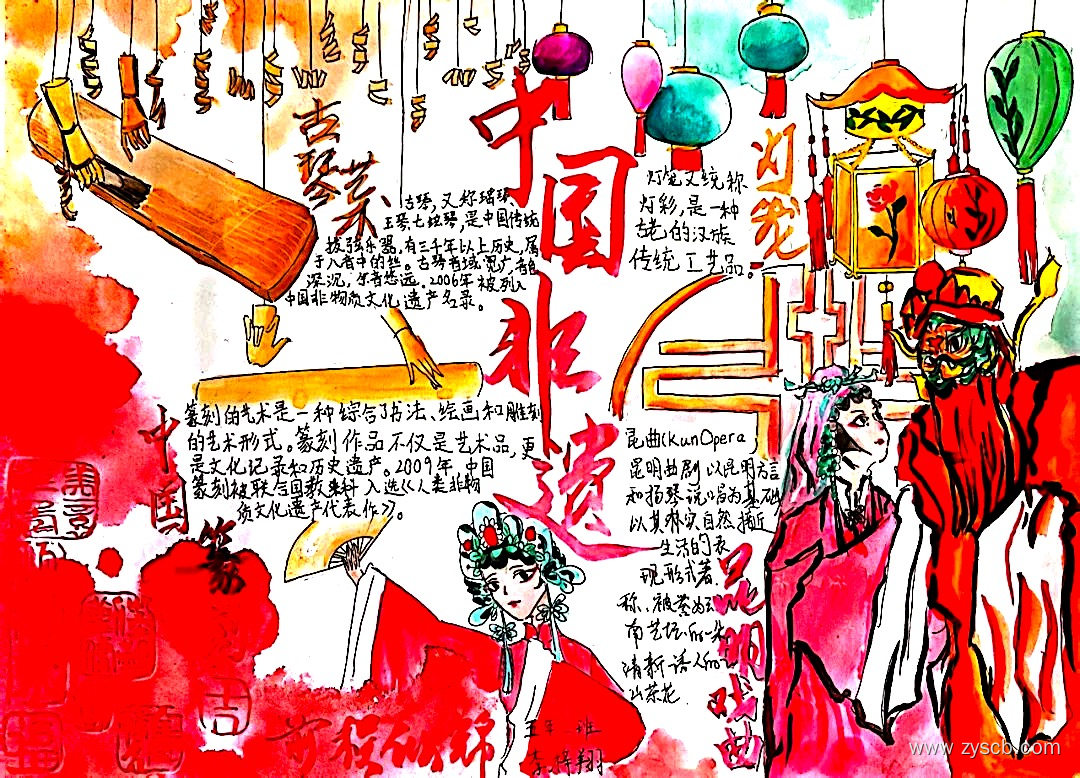 中国非遗
古琴艺
古琴,又称瑶琴、
玉琴七弦琴,是中国传统
拨弦乐器,有三千年以上历史,属
于八音中的丝。古琴音域宽广,音色
深沉,余音悠远。2006年被列入
中国非物质文化遗产名录。
灯笼
灯笼又统称
灯彩,是一种
古老的汉族
传统工艺品。
中国篆
篆刻的艺术是一种综合了书法、绘画和雕刻
的艺术形式。篆刻作品不仅是艺术品,更
是文化记录和历史遗产。2009年,中国
篆刻被联合国教科 入选《人类非物
质文化遗产代表作》。
昆曲(KunOpera)
昆明曲剧以昆明方言
和扬琴说唱为基础
以其朴实自然描近
生活的表
现形式著
称,被
南艺坛的一朵
清新
山茶花
昆明戏曲
前程似锦
五年 班
www.zyscb.com